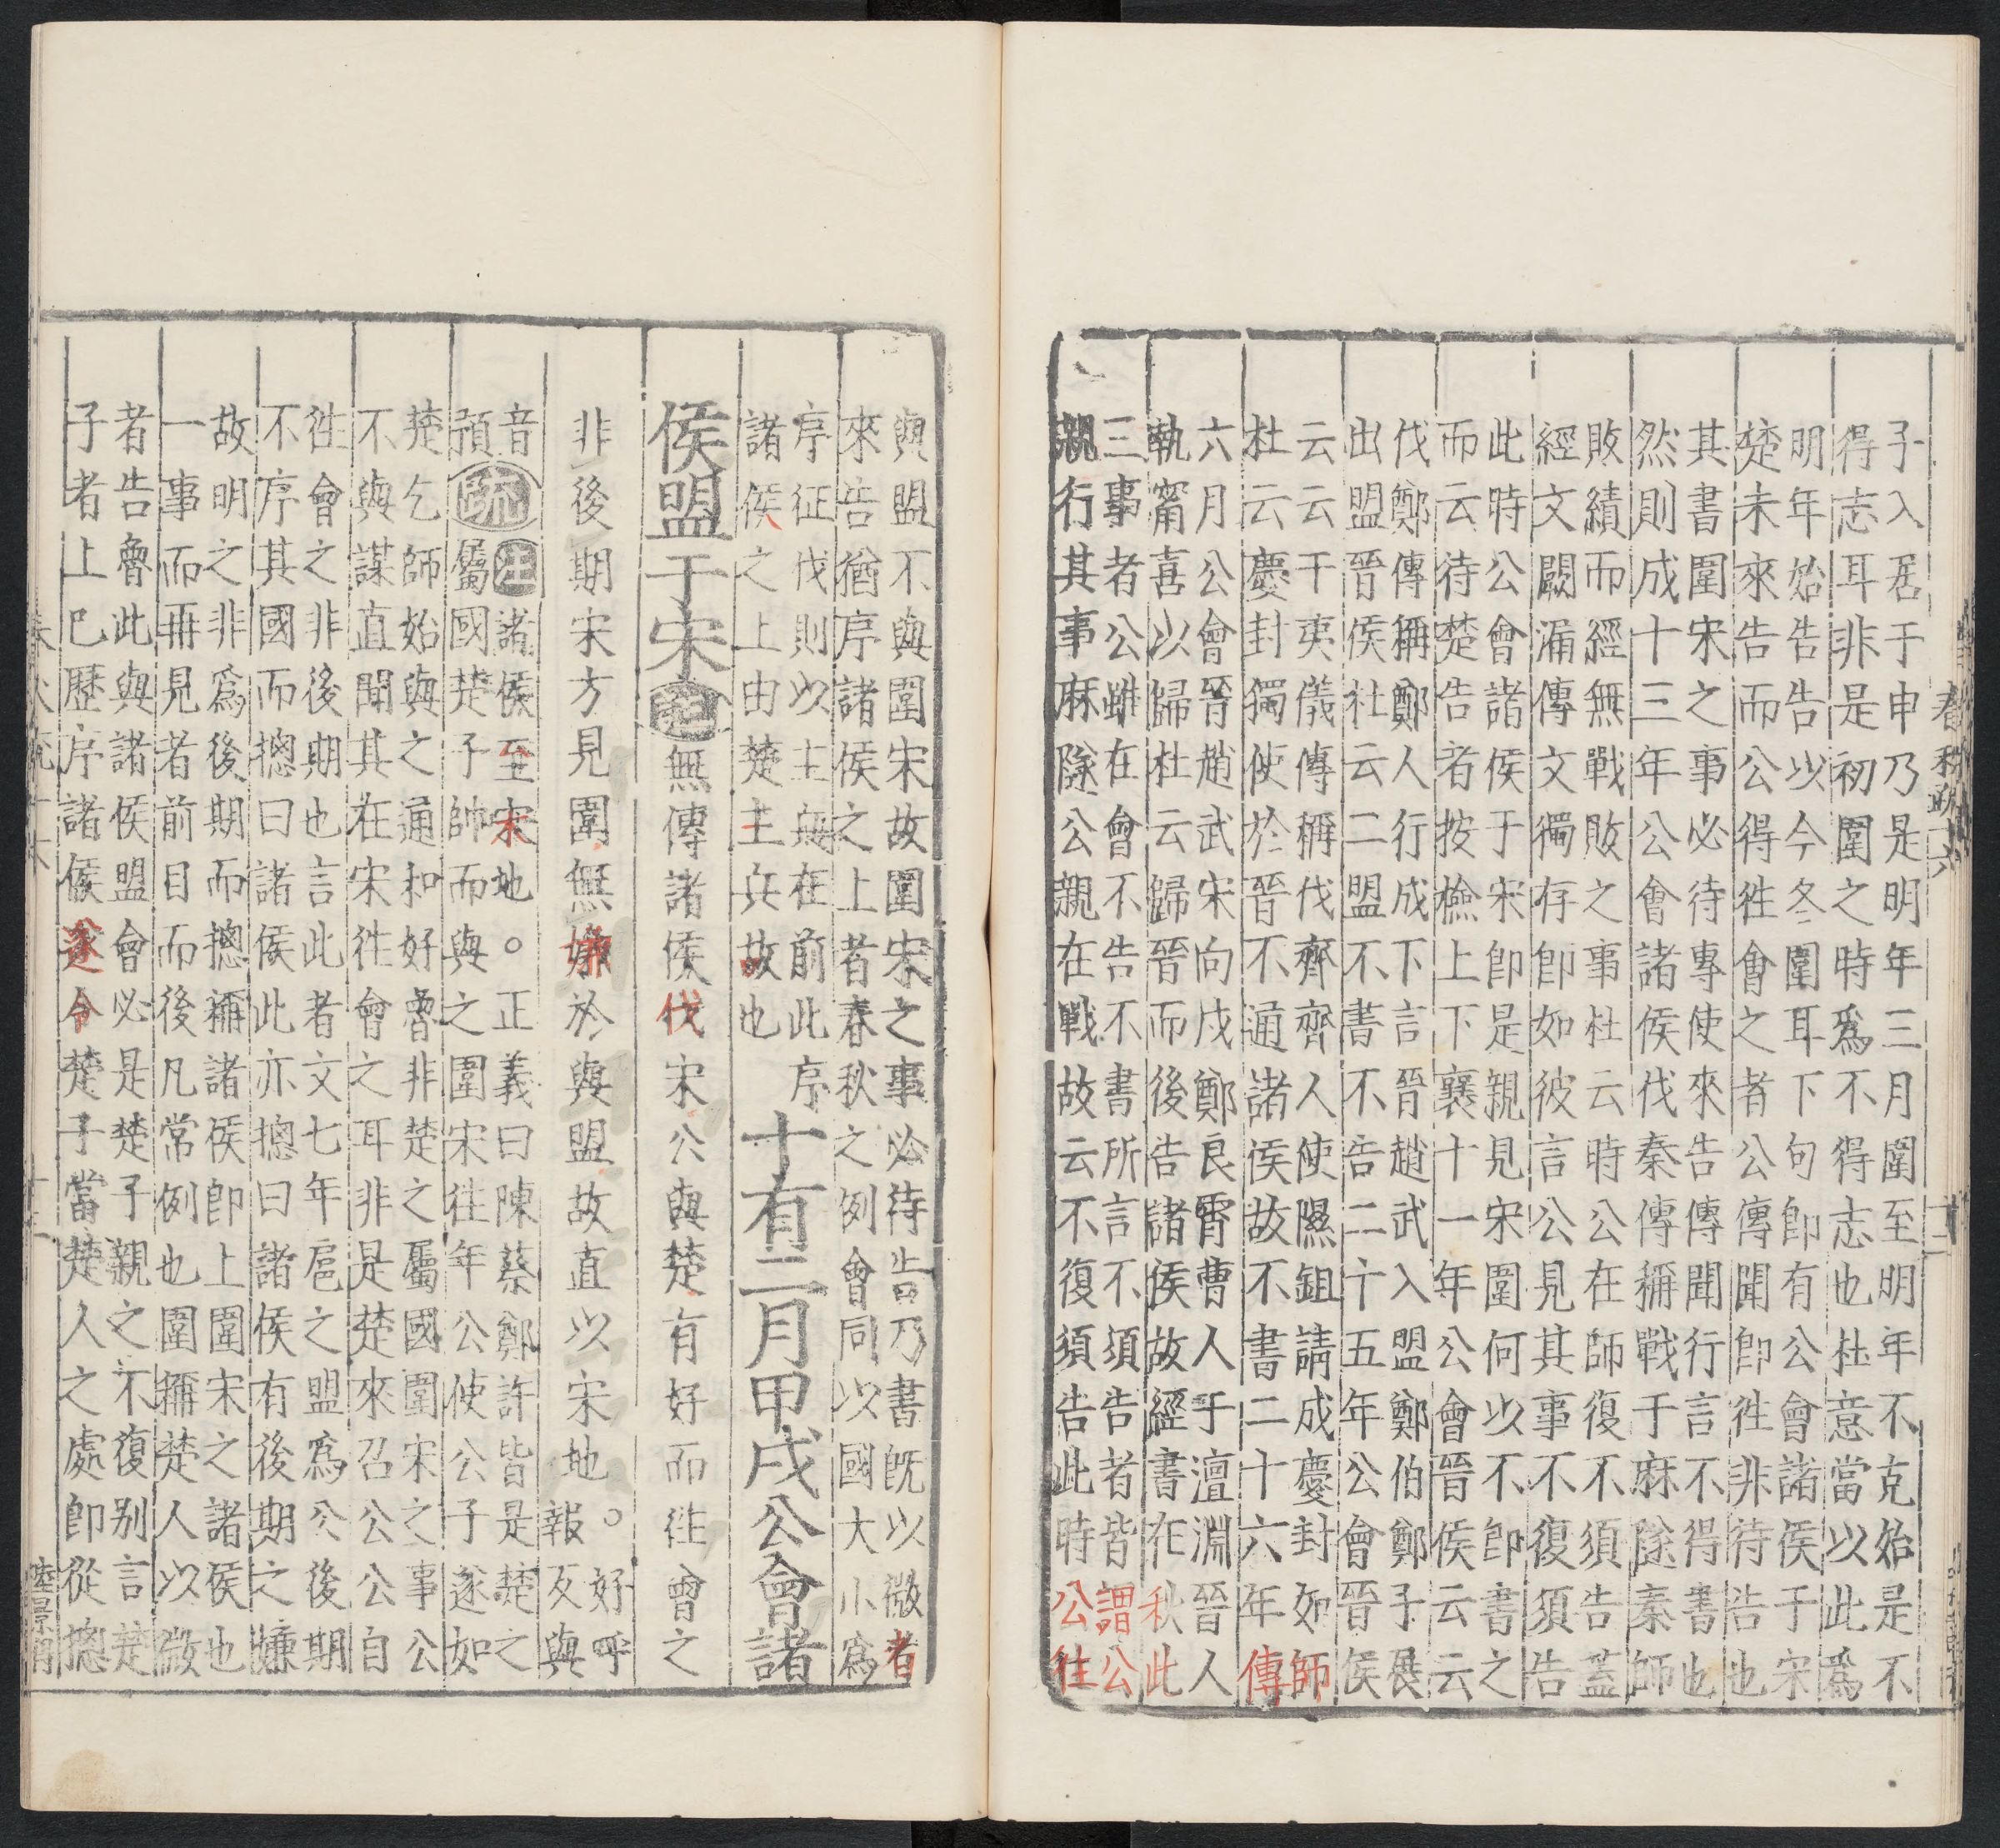 春秋疏十六
十二
子入居于申乃是明年三月圍至明年不克始是不
得志耳非是初圍之時爲不得志也杜意當以此爲
明年始告告以今冬圍耳下句卽有公會諸侯于宋
楚未來告而公得徃會之者公傳聞卽徃非待告也
其書圍宋之事必待專使來告傳聞行言不得書也
然則成十三年公會諸侯伐秦傳稱戰于麻隧秦師
敗績而經無戰敗之事杜云時公在師復不須告蓋
經文闕漏傳文獨存卽如彼言公見其事不復須告
此時公會諸侯于宋卽是親見宋圍何以不卽書之
而云待楚告者按檢上下襄十一年公會晉侯云云
伐鄭傳稱鄭人行成下言晉趙武入盟鄭伯鄭子展
出盟晉侯杜云二盟不書不告二十五年公會晉侯
云云于夷儀傳稱伐齊齊人使隰鉏請成慶封如師
杜云慶封獨使於晉不通諸侯故不書二十六年傳
六月公會晉趙武宋向戌鄭良霄曹人于澶淵晉人
執甯喜以歸杜云歸晉而後告諸侯故經書在秋此
三事者公雖在會不告不書所言不須告者皆謂公
親行其事麻隧公親在戰故云不復須告此時公往
與盟不與圍宋故圍宋之事必待告乃書旣以微者
來告猶序諸侯之上者春秋之例會同以國大小爲
序征伐則以主兵在前此序
諸侯之上由楚主兵故也
十有二月甲戌公會諸
侯盟于宋註無傳諸侯伐宋公與楚有好而徃會之
非後期宋方見圍無嫌於與盟故直以宋地。好呼
報反與
音
預
疏注諸侯至宋地。正義曰陳蔡鄭許皆是楚之
屬國楚子帥而與之圍宋往年公使公子遂如
楚乞師始與之通和好魯非楚之屬國圍宋之事公
不與謀直聞其在宋徃會之耳非是楚來召公公自
徃會之非後期也言此者文七年扈之盟爲公後期
不序其國而摠曰諸侯此亦摠曰諸侯有後期之嫌
故明之非爲後期而摠稱諸侯卽上圍宋之諸侯也
一事而再見者前目而後凡常例也圍稱楚人以微
者告魯此與諸侯盟會必是楚子親之不復别言楚
子者上已歷序諸侯遂令楚子當楚人之處卽從摠